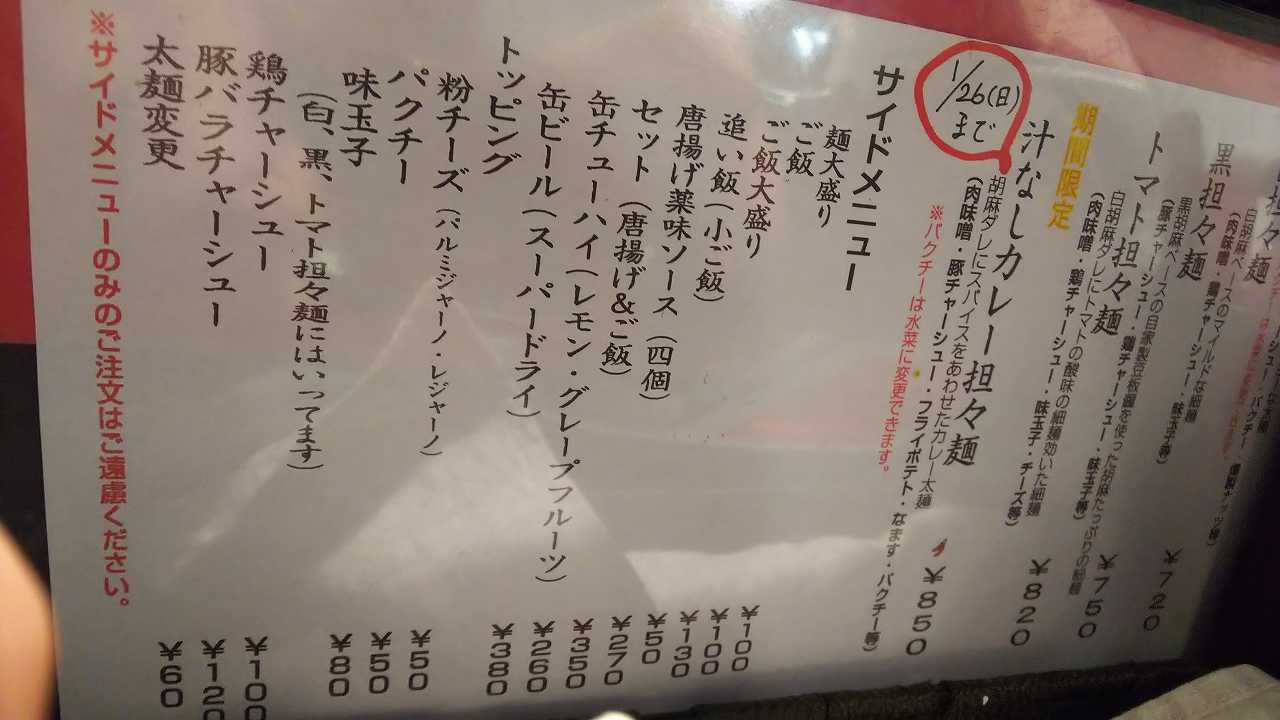 担々麺
白胡麻ベースのマイルドな細麺
¥720
黒担々麺
黒胡麻ベースの自家製豆板醤を使った胡麻たっぷりの細麺
(豚チャーシュー・鶏チャーシュー・味玉子等)
¥750
トマト担々麺
白胡麻ダレにトマトの酸味の細麺効いた細麺
(肉味噌・鶏チャーシュー・味玉子・チーズ等)
¥820
期間限定
汁なしカレー担々麺
胡麻ダレにスパイスをあわせたカレー太麺
(肉味噌・豚チャーシュー・フライポテト・なます・パクチー等)
¥850
※パクチーは水菜に変更できます。
1/26(日)
まで
サイドメニュー
麺大盛り ¥100
ご飯 ¥100
ご飯大盛り ¥130
追い飯(小ご飯) ¥50
唐揚げ薬味ソース(四個) ¥270
セット(唐揚げ&ご飯) ¥350
缶チューハイ(レモン・グレープフルーツ) ¥260
缶ビール(スーパードライ) ¥380
トッピング
粉チーズ(パルミジャーノ・レジャーノ) ¥50
パクチー ¥50
味玉子 ¥80
(白、黒、トマト担々麺にはいってます)
鶏チャーシュー ¥100
豚バラチャーシュー ¥120
太麺変更 ¥60
※サイドメニューのみのご注文はご遠慮ください。